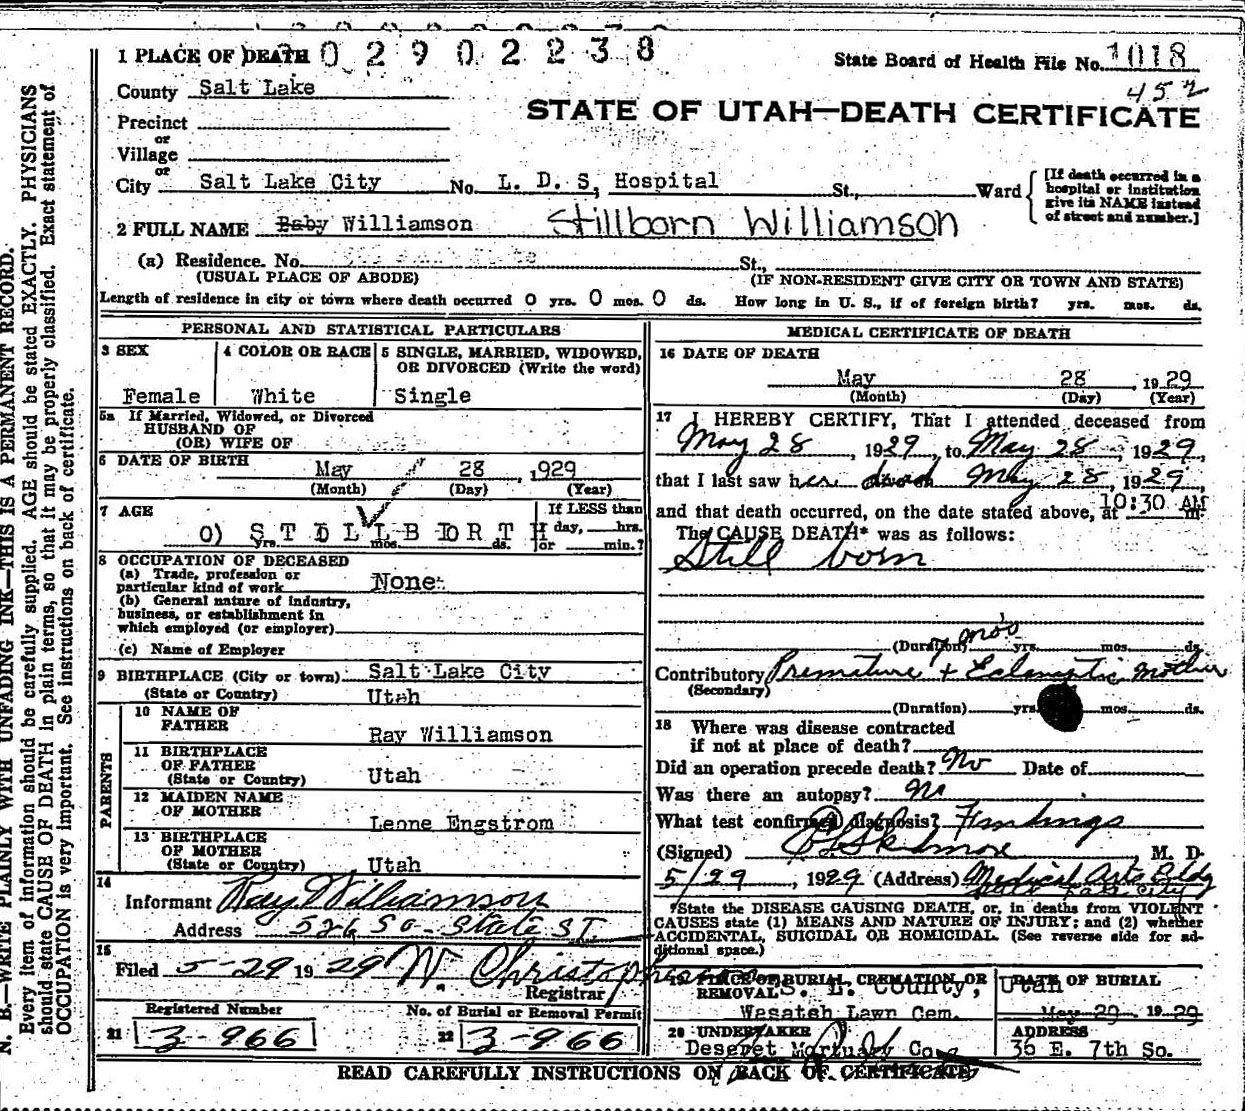 1 PLACE OF DEATH 0 2 9 0 2 2 3 8
State Board of Health File No. 1018
452
County Salt Lake
STATE OF UTAH—DEATH CERTIFICATE
Precinct
or
Village
or
City Salt Lake City No. L. D. S, Hospital St., Ward
[If death occurred in a hospital or institution give its NAME instead of street and number.]
2 FULL NAME Baby Williamson Stillborn Williamson
(a) Residence. No. St.,
(USUAL PLACE OF ABODE) (IF NON-RESIDENT GIVE CITY OR TOWN AND STATE)
Length of residence in city or town where death occurred 0 yrs. 0 mos. 0 ds. How long in U. S., if of foreign birth? yrs. mos. ds.
PERSONAL AND STATISTICAL PARTICULARS
3 SEX 4 COLOR OR RACE 5 SINGLE, MARRIED, WIDOWED,
OR DIVORCED (Write the word)
Female White Single
5a If Married, Widowed, or Divorced
HUSBAND OF
(OR) WIFE OF
6 DATE OF BIRTH
May 28 , 1929
(Month) (Day) (Year)
7 AGE If LESS than
0) S T I L L B I R T H day, hrs.
yrs. mos. ds. or min.?
8 OCCUPATION OF DECEASED
(a) Trade, profession or
particular kind of work None
(b) General nature of industry,
business, or establishment in
which employed (or employer)
(c) Name of Employer
9 BIRTHPLACE (City or town) Salt Lake City
(State or Country) Utah
PARENTS
10 NAME OF
FATHER Ray Williamson
11 BIRTHPLACE
OF FATHER
(State or Country) Utah
12 MAIDEN NAME
OF MOTHER Leone Engstrom
13 BIRTHPLACE
OF MOTHER
(State or Country) Utah
14
Informant Ray Williamson
Address 526 So - State ST
15
Filed 5-29 1929 W. Christopherson
Registrar
Registered Number No. of Burial or Removal Permit
21 3-966 22 3-966
MEDICAL CERTIFICATE OF DEATH
16 DATE OF DEATH
May 28 , 1929
(Month) (Day) (Year)
17 I HEREBY CERTIFY, That I attended deceased from
May 28 , 1929, to May 28 , 1929,
that I last saw her dead May 28, 1929,
and that death occurred, on the date stated above, at 10:30 AM m.
The CAUSE DEATH* was as follows:
Still born
(Duration) yrs. mos. ds.
7 mos
Contributory Premature + Eclamptic mother
(Secondary)
(Duration) yrs. mos. ds.
18 Where was disease contracted
if not at place of death?
Did an operation precede death? No Date of
Was there an autopsy? No
What test confirmed diagnosis? Findings
(Signed) Skidmore M. D.
5/29 , 1929 (Address) Medical Arts Bldg
*State the DISEASE CAUSING DEATH, or, in deaths from VIOLENT
CAUSES state (1) MEANS AND NATURE OF INJURY; and (2) whether
ACCIDENTAL, SUICIDAL OR HOMICIDAL. (See reverse side for ad-
ditional space.)
19 PLACE OF BURIAL, CREMATION, OR DATE OF BURIAL
REMOVAL S. L. County, Utah
Wasatch Lawn Cem. May 29 1929
20 UNDERTAKER ADDRESS
Deseret Mortuary Co. 36 E. 7th So.
READ CAREFULLY INSTRUCTIONS ON BACK OF CERTIFICATE
N. B.—WRITE PLAINLY WITH UNFADING INK—THIS IS A PERMANENT RECORD.
Every item of information should be carefully supplied. AGE should be stated EXACTLY. PHYSICIANS
should state CAUSE OF DEATH in plain terms, so that it may be properly classified. Exact statement of
OCCUPATION is very important. See instructions on back of certificate.